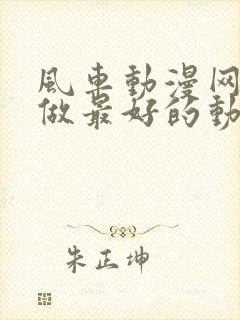 風車動漫网
做最好的動
朱正坤